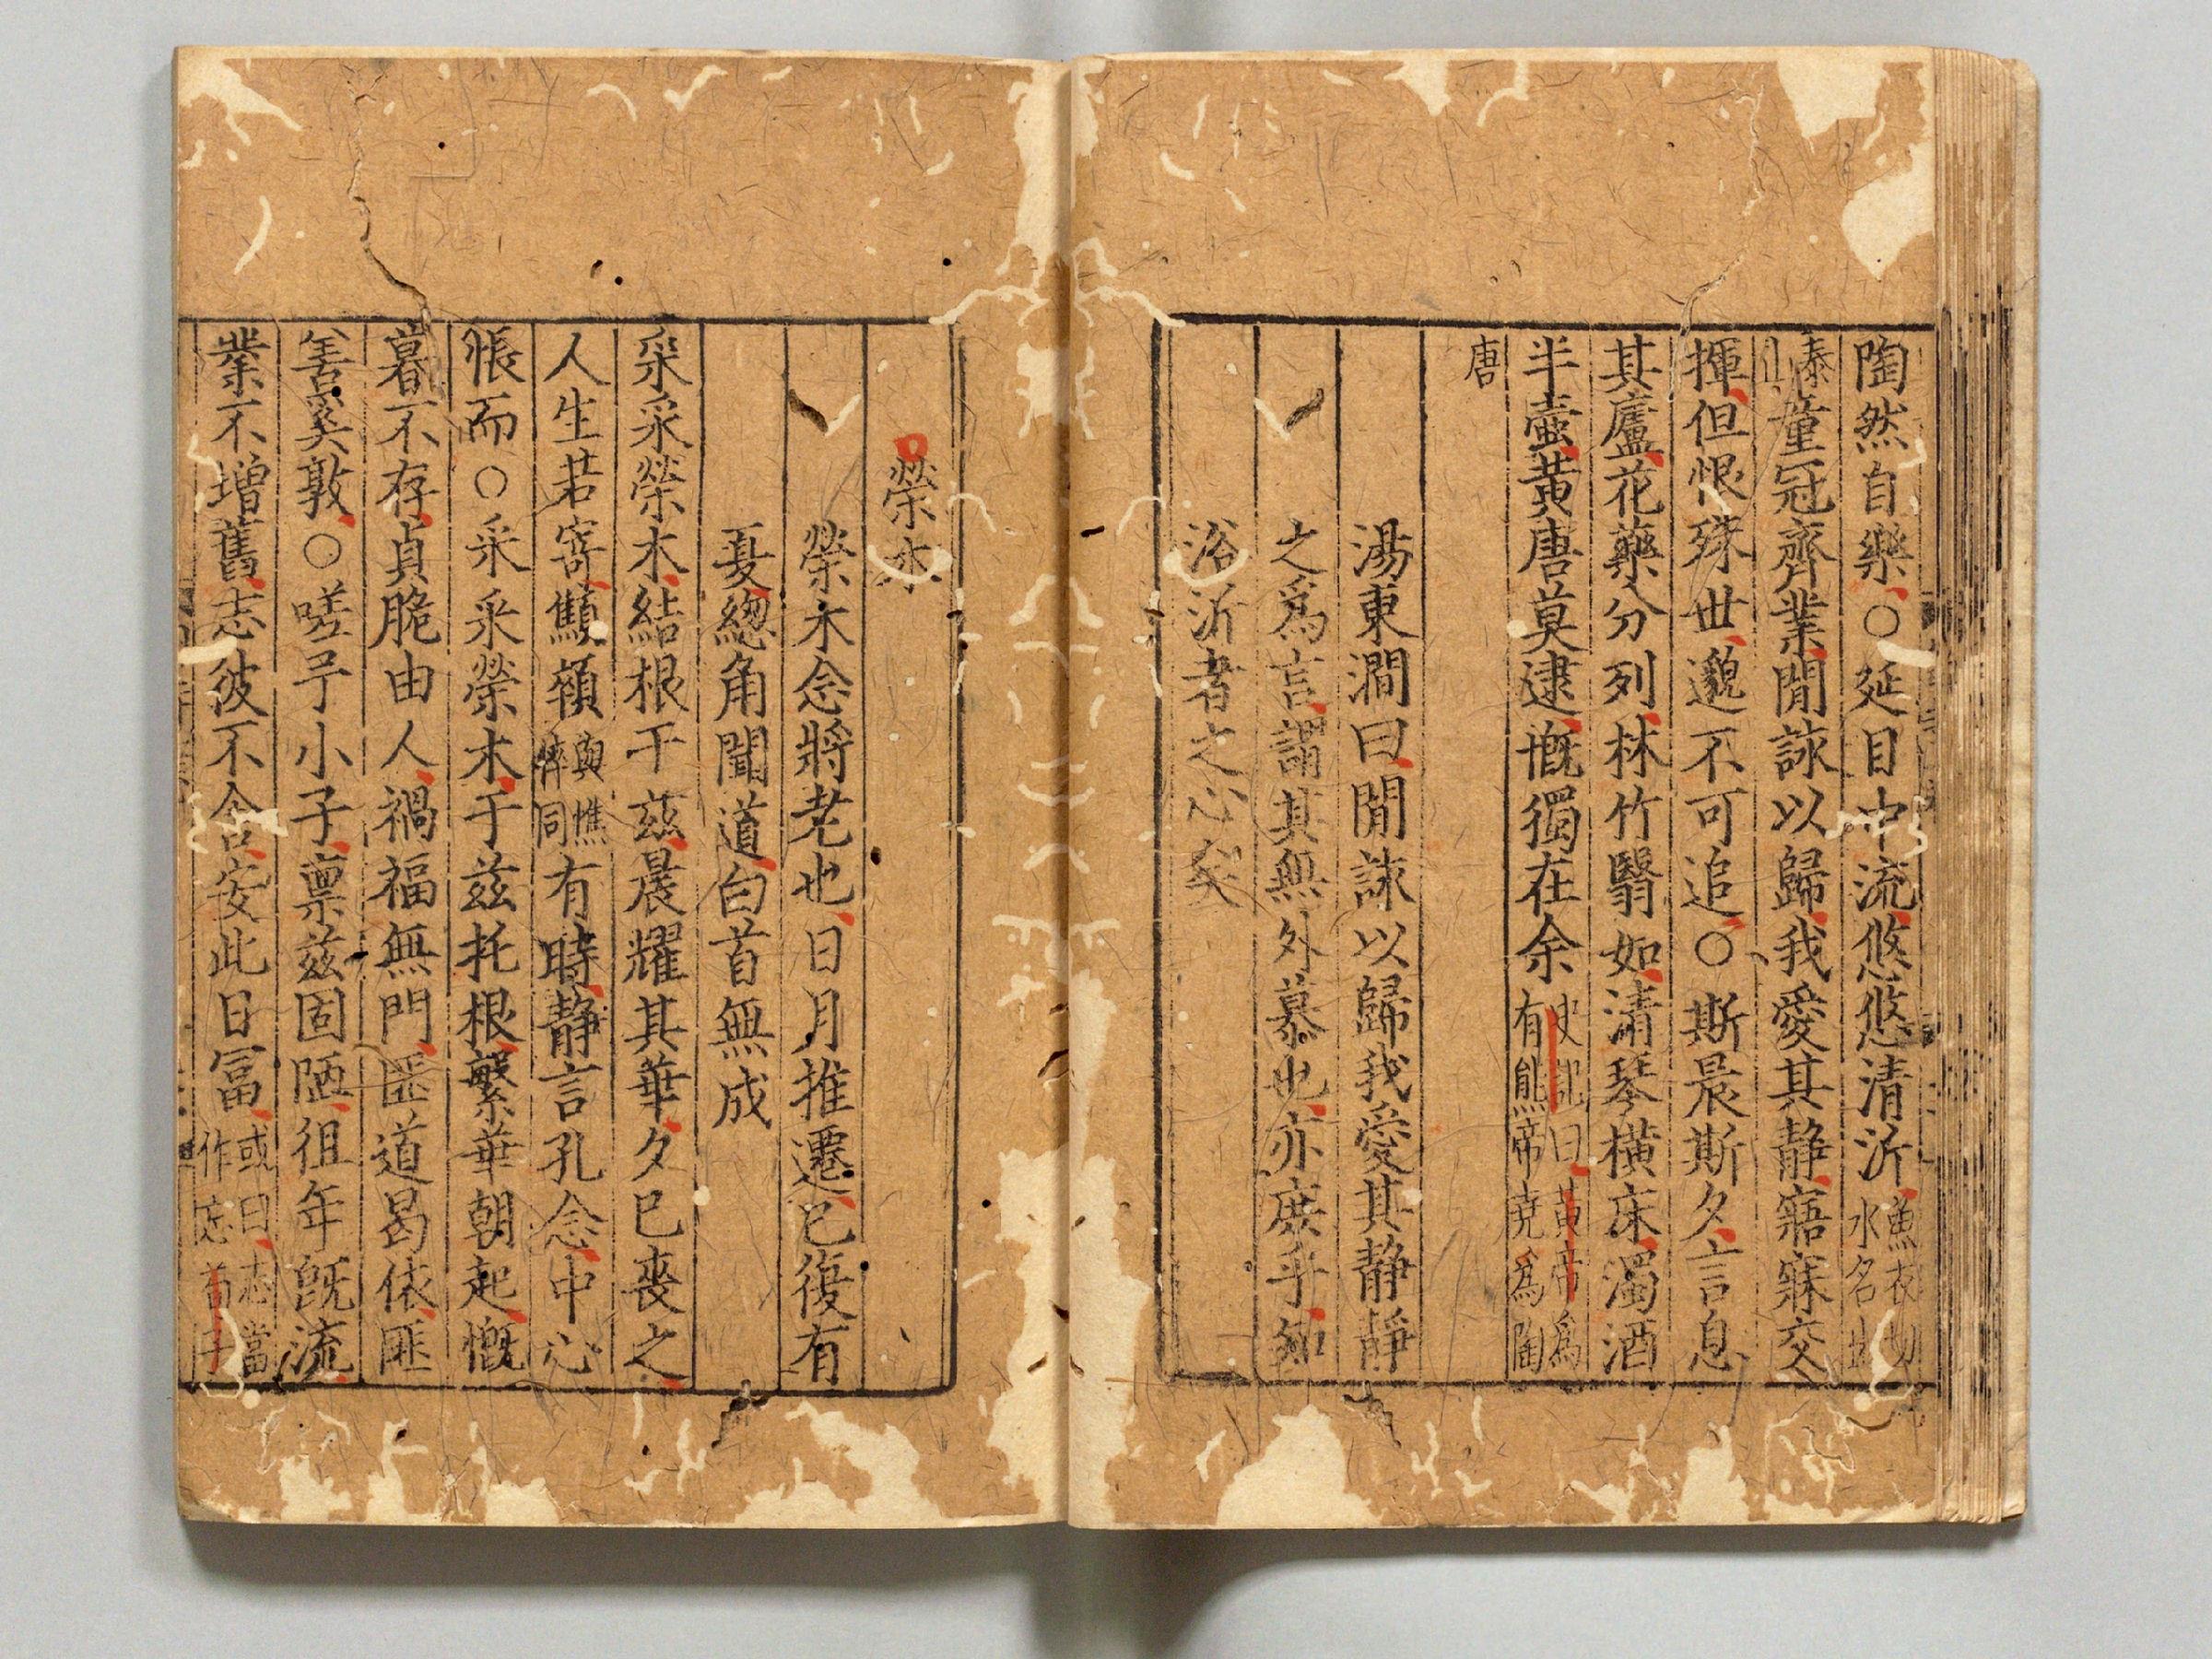 陶然自樂○延目中流悠悠清沂魚衣切水名出
泰山童冠齊業閒詠以歸我愛其静寤寐交
揮但恨殊世邈不可追○斯晨斯夕言息
其廬花藥分列林竹翳如清琴横床濁酒
半壺黄唐莫逮慨獨在余史記曰黄帝為有熊帝堯為陶
唐
湯東澗曰閒詠以歸我愛其静静
之為言謂其無外慕也亦庶乎知
浴沂者之心矣
榮木
榮木念將老也日月推遷已復有
夏緫角聞道白首無成
采采榮木結根于兹晨耀其華夕已喪之
人生若寄顦顇與憔悴同有時静言孔念中心
悵而○采采榮木于兹托根繁華朝起慨
暮不存貞脆由人禍福無門匪道曷依匪
善奚敦○嗟予小子禀兹固陋徂年旣流
業不增舊志彼不舍安此日富或曰志當作忘荀子